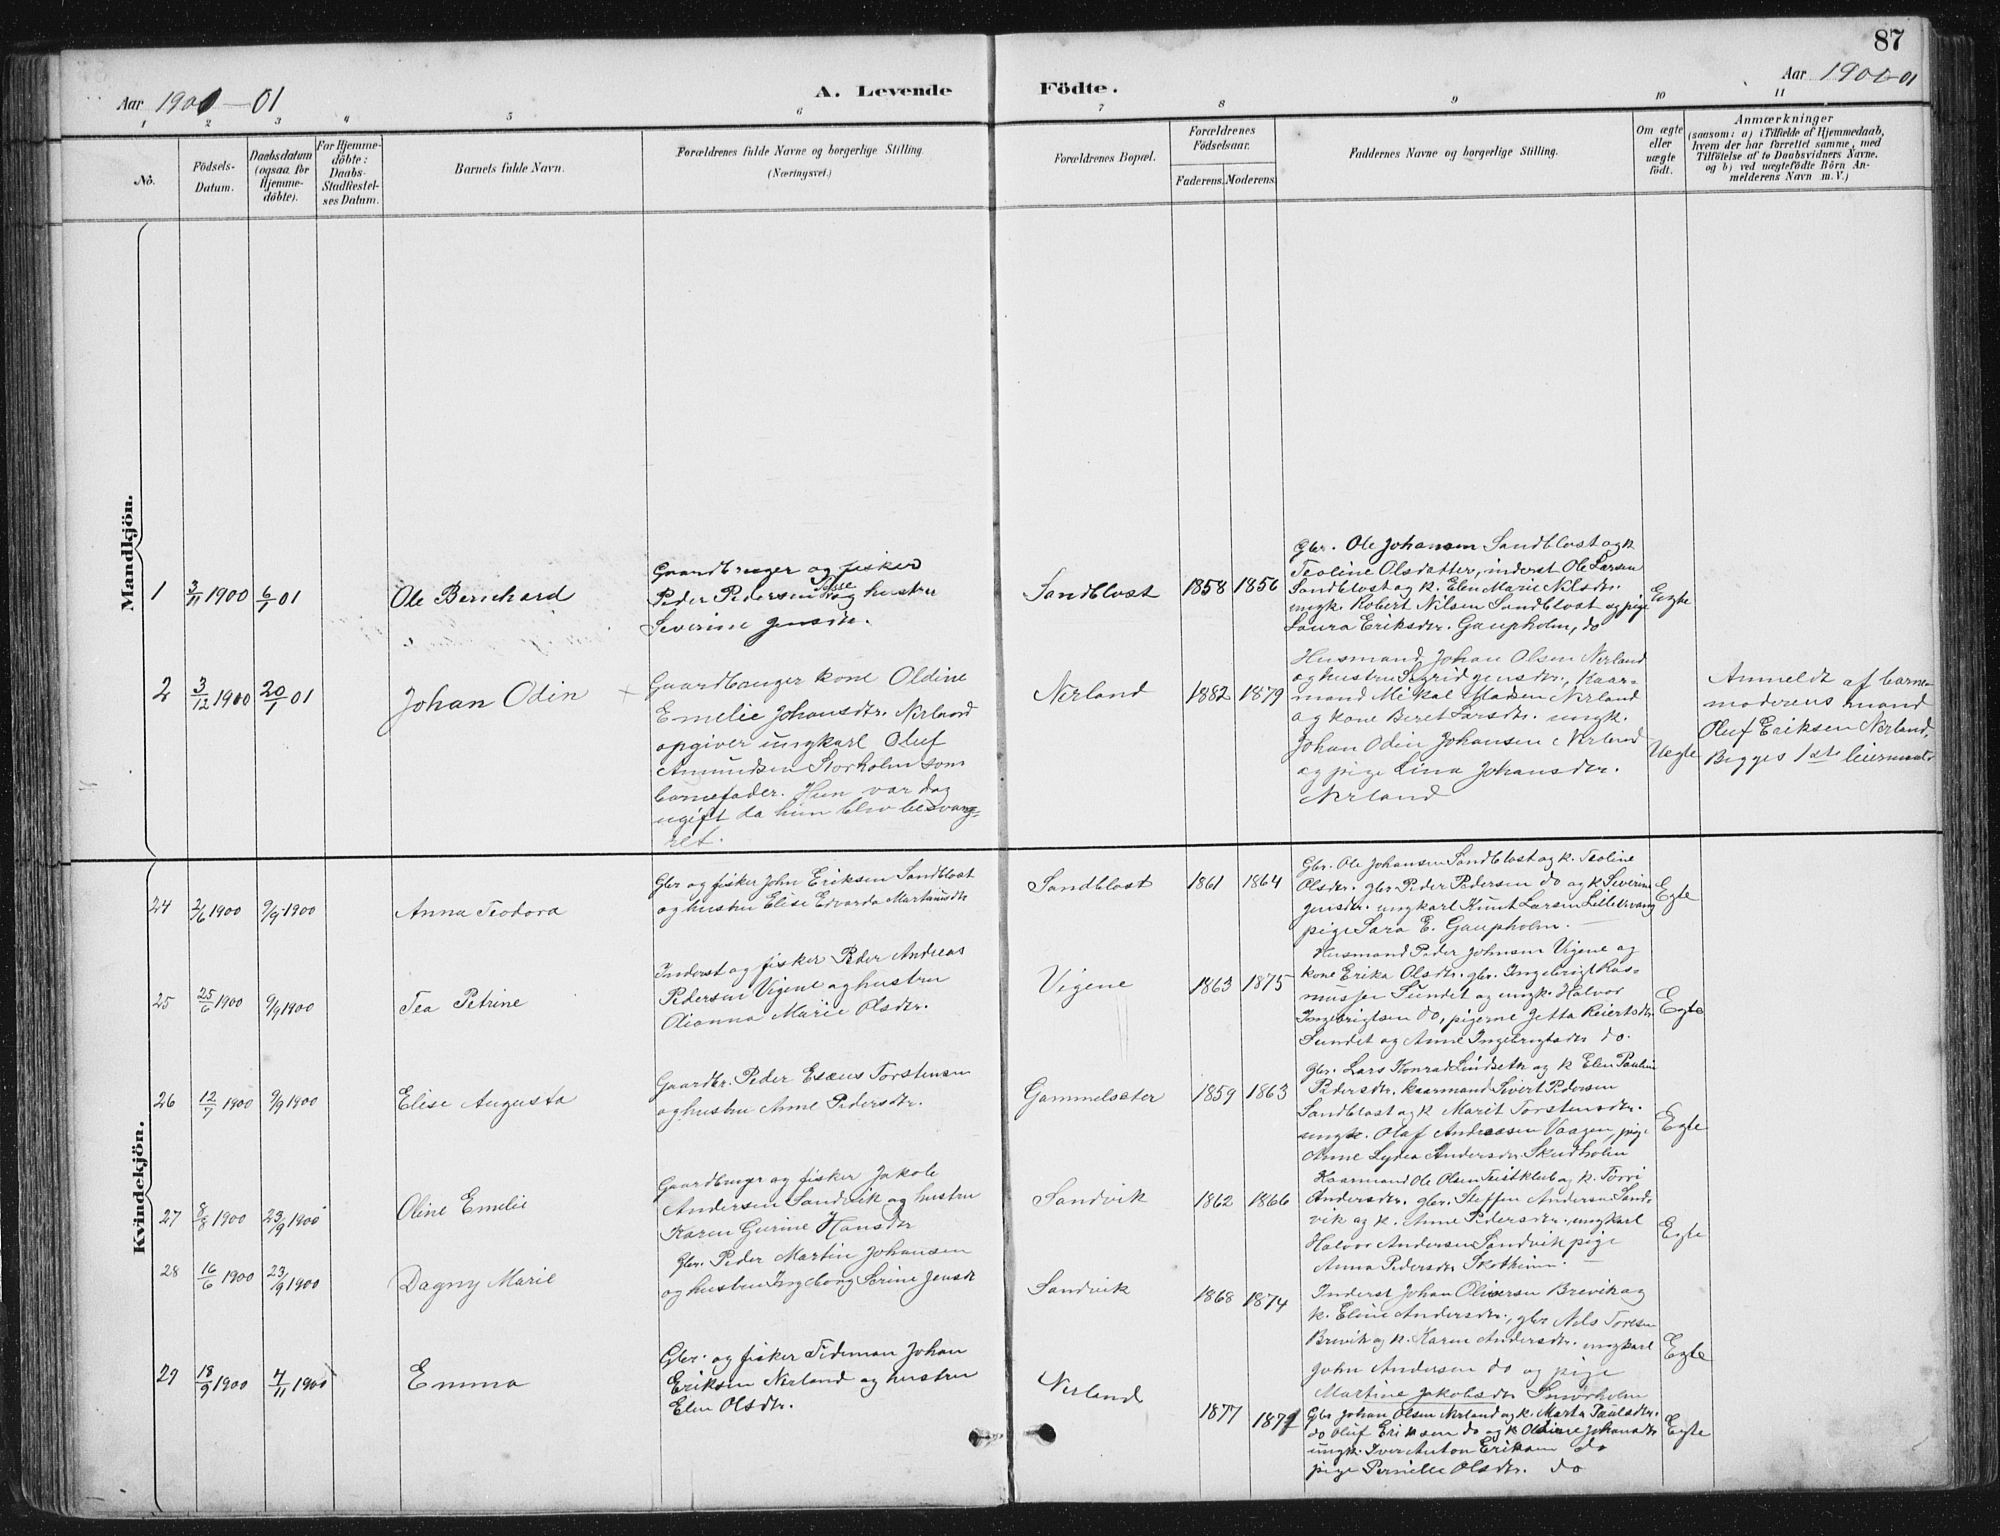 87
Aar 1900-01
A. Levende
Födte.
Aar 1900-01
1 2 3 4 5 6 7 8 9 10 11
No.
Födsels-
Datum.
Daabsdatum
(ogsaa for
Hjemme-
döbte).
For Hjemme-
döbte:
Daabs-
Stadfæstel-
ses Datum.
Barnets fulde Navn.
Forældrenes fulde Navne og borgerlige Stilling.
(Næringsvei.)
Forældrenes Bopæl.
Forældrenes
Födselsaar.
Faderens. Moderens.
Faddernes Navne og borgerlige Stilling.
Om ægte
eller
uægte
födt.
Anmærkninger
(saasom: a) i Tilfælde af Hjemmedaab,
hvem der har forrettet samme, med
Tilföielse af to Daabsvidners Navne.
og b) ved uægtefödte Börn An-
melderens Navn m. V.)
Mandkjön.
1 3/11 1900 6/1 01 Ole Bernhard
Gaardbruger og fisker
Peder Pedersen og hustru
Severine Jensdtr.
Sandblost 1858 1856
Gbr. Ole Johansen Sandblost og k
Teoline Olsdatter, inderst Ole Larsen
Sandblost og k. Elen Marie Nilsdtr.
ungk. Robert Nilsen Sandblost og pige
Laura Eriksdtr. Gaupholm, do
Egte
2 3/12 1900 20/1 01 Johan Odin
Gaardbruger kone Oldine
Emelie Johansdtr. Nerland
opgiver ungkarl Oluf
Amundsen Storholm som
barnefader. Hun var dog
ugift da hun blev besvang-
ret.
Nerland 1882 1879
Husmand Johan Olsen Nerland
og hustru Sigrid Jensdtr., Kaar-
mand Mikal Madsen Nerland
og kone Beret Larsdtr. ungk.
Johan Odin Johansen Nerland
og pige Lina Johansdtr.
Nerland
Uegte
Anmeldt af barne-
moderens mand
Oluf Eriksen Nerland.
Begges 1ste leiermaal
Kvindekjön.
24 2/6 1900 9/9 1900 Anna Teodora
Gbr og fisker John Eriksen Sandblost
og hustru Elise Edvarda Martinusdtr
Sandblost 1861 1864
Gbr. Ole Johansen Sandblost og k. Teoline
Olsdtr. gbr Peder Pedersen do og k Severine
Jensdtr. ungkarl Knut Larsen Lillevang
pige Sara E. Gaupholm.
Egte
25 25/6 1900 9/9 1900 Tea Petrine
Inderst og fisker Peder Andreas
Pedersen Vigene og hustru
Olianna Marie Olsdtr.
Vigene 1863 1875
Husmand Peder Johnsen Vigene og
kone Erika Olsdtr. gbr. Ingebrigt Ras-
mussen Sundet og ungk. Halvor
Ingebrigtsen do, pigerne Jetta Reiertsdtr
Sundet og Anne Ingebrigtsdtr do.
Egte
26 12/7 1900 9/9 1900 Elise Augusta
Gaardbr. Peder Esæus Torstensen
og hustru Anne Pedersdtr.
Gammelsæter 1859 1863
Gbr. Lars Konrad Lindseth og k Elen Pauline
Pedersdtr. kaarmand Sivert Pedersen
Sandblost og k Marit Torstensdtr.
ungk. Olaf Andreasen Vaagen, pige
Anne Lydia Andersdtr Skudholm
Egte
27 8/8 1900 23/9 1900 Oline Emelie
Gaardbruger og fisker Jakob
Andersen Sandvik og hustru
Karen Gurine Hansdtr
Sandvik 1862 1866
Kaarmand Ole Olsen Teistklub og k. Torri
Andersdtr. gbr. Steffen Andersen Sand-
vik og k. Anne Pedersdtr. ungkarl
Halvor Andersen Sandvik pige
Anna Pedersdtr Skotheim.
Egte
28 16/6 1900 23/9 1900 Dagny Marie
Gbr. Peder Martin Johansen
og hustru Ingeborg Serine Jensdtr
Sandvik 1868 1874
Inderst Johan Oliversen Brevik og
k. Eline Andersdtr., gbr Nels Toresen
Brevik og k. Karen Andersdtr. ungkarl
John Andersen do og pige
Martine Jakobsdtr Smörholm
Egte
29 18/9 1900 4/11 1900 Emma
Gbr. og fisker Tideman Johan
Eriksen Nerland og hustru
Elen Olsdtr.
Nerland 1877 1871
Gbr Johan Olsen Nerland og k. Marta Paulsdtr.
do Oluf Eriksen do og k Oldine Johansdtr
ungk. Iver Anton Eriksen do
pige Pernille Olsdtr. do
Egte